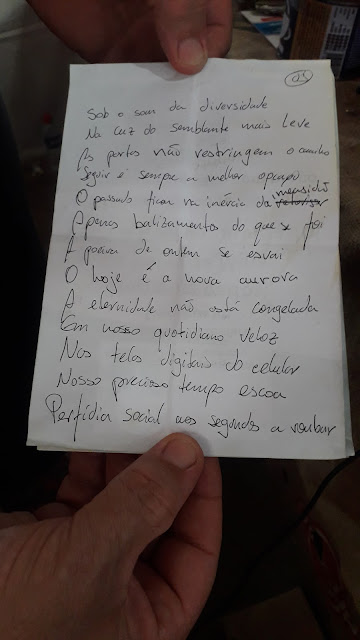 03
Sob o som da diversidade
Na luz do semblante mais leve
As portas não restringem o caminho
Seguir é sempre a melhor opção
O passado ficou na inércia da mansidão
Apenas balizamentos do que se foi
A poeira de ontem se esvai
O hoje é a nova aurora
A eternidade não está congelada
Em nosso quotidiano veloz
Nas telas digitais do celular
Nosso precioso tempo escoa
Perfídia social aos segundos a roubar